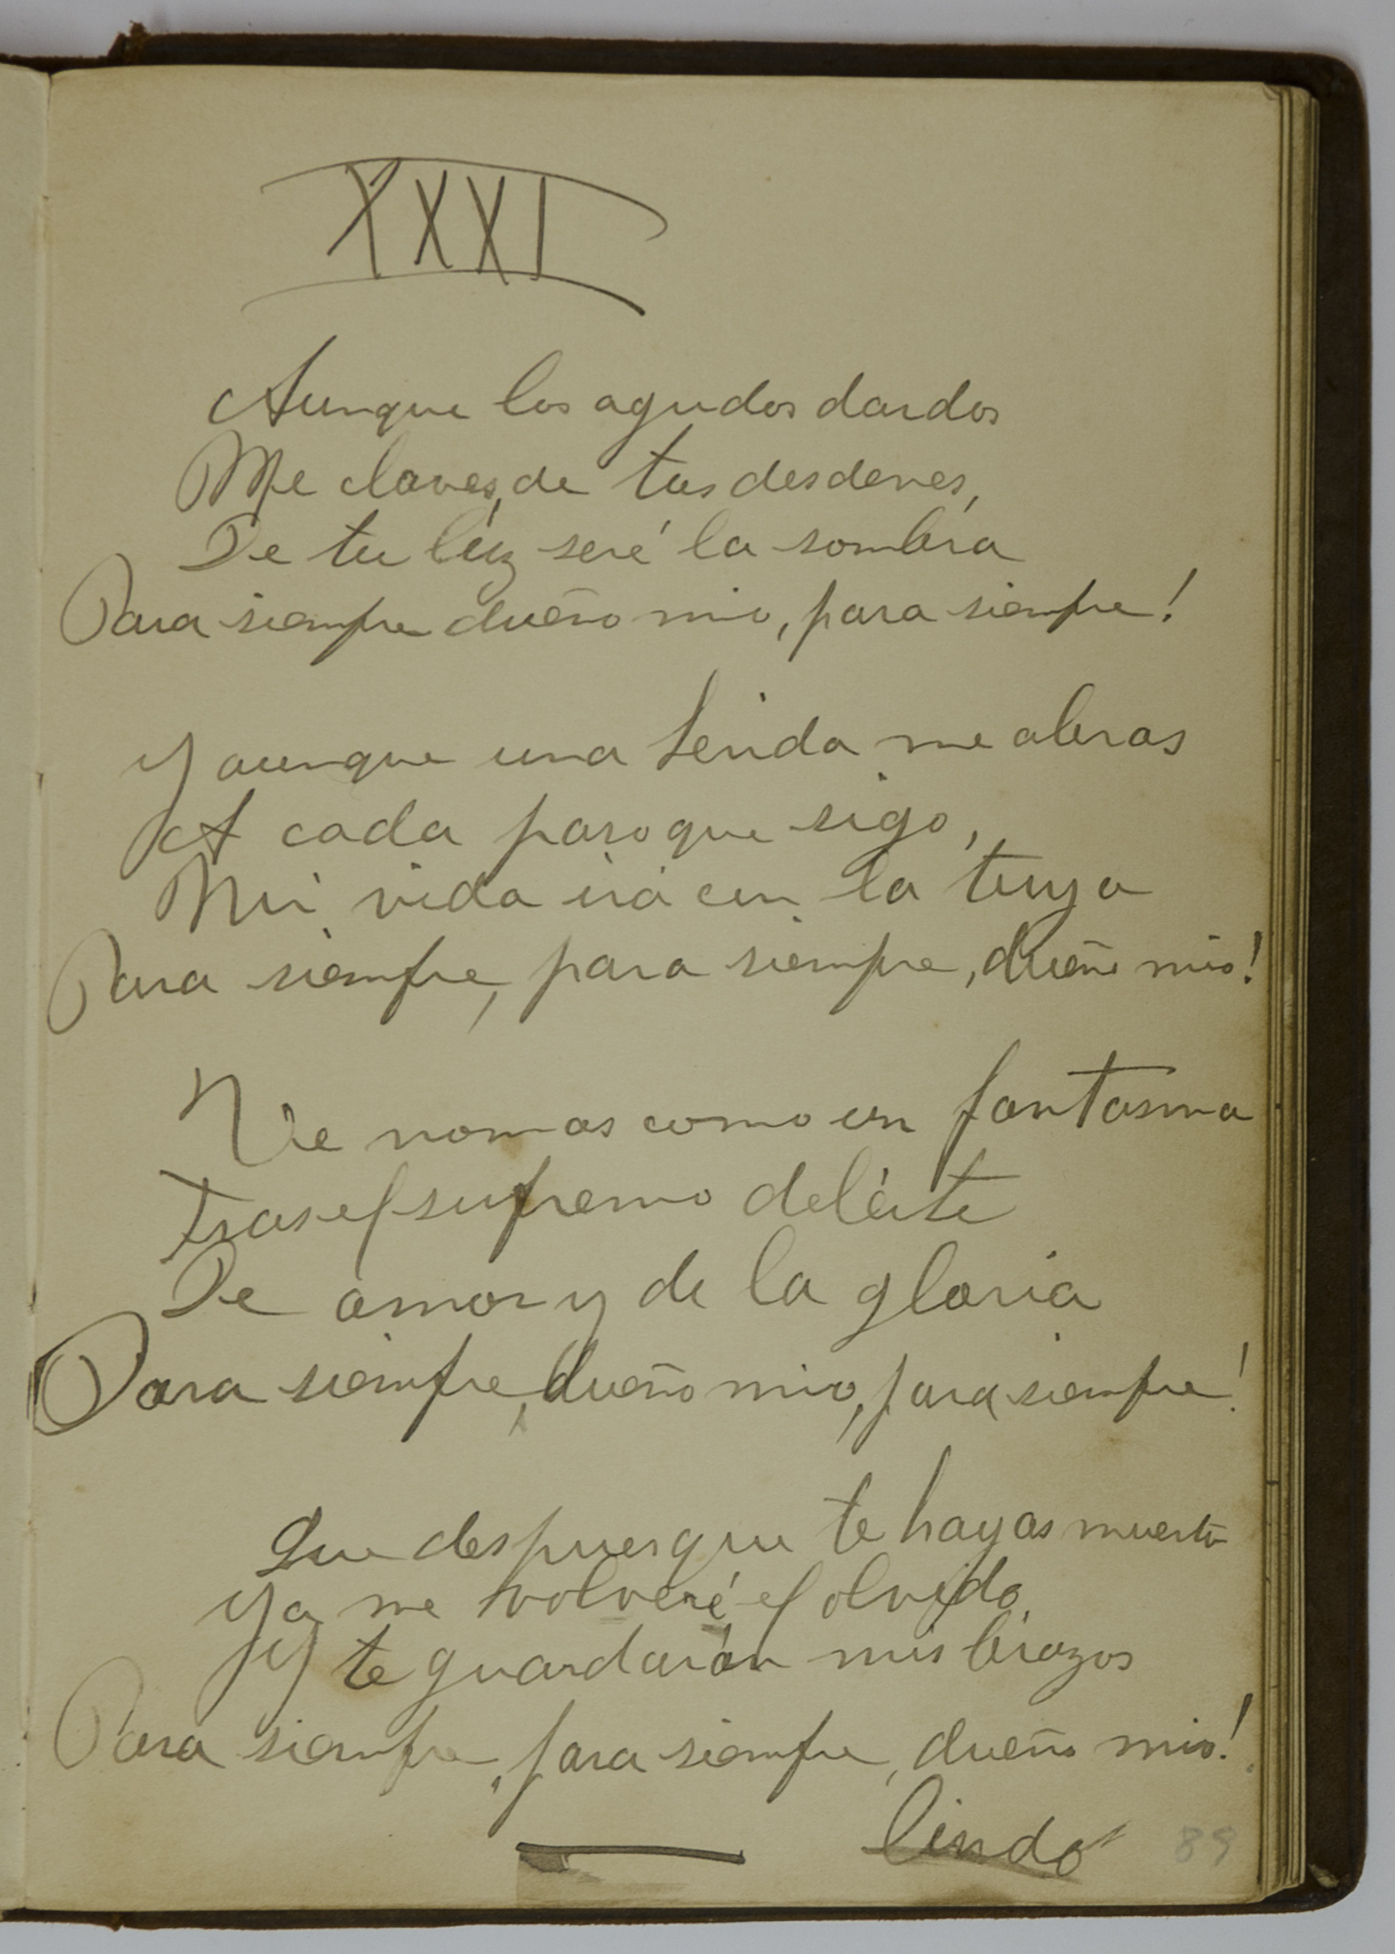 XXXI
Aunque los agudos dardos
Me claves, de tus desdenes,
De tu lúz seré la sombra
Para siempre dueño mio, para siempre!
Y aunque una herida me abras
A cada paso que sigo,
Mi vida irá con la tuya
Para siempre, para siempre, dueño mio!
Iré nomas como un fantasma
Tras el supremo deleite
De amor y de la gloria
Para siempre, dueño mio, para siempre!
Que despues que te hayas muerto
Ya me volveré el olvido,
Y te guardarán mis brazos
Para siempre, para siempre, dueño mio!
lindo
89